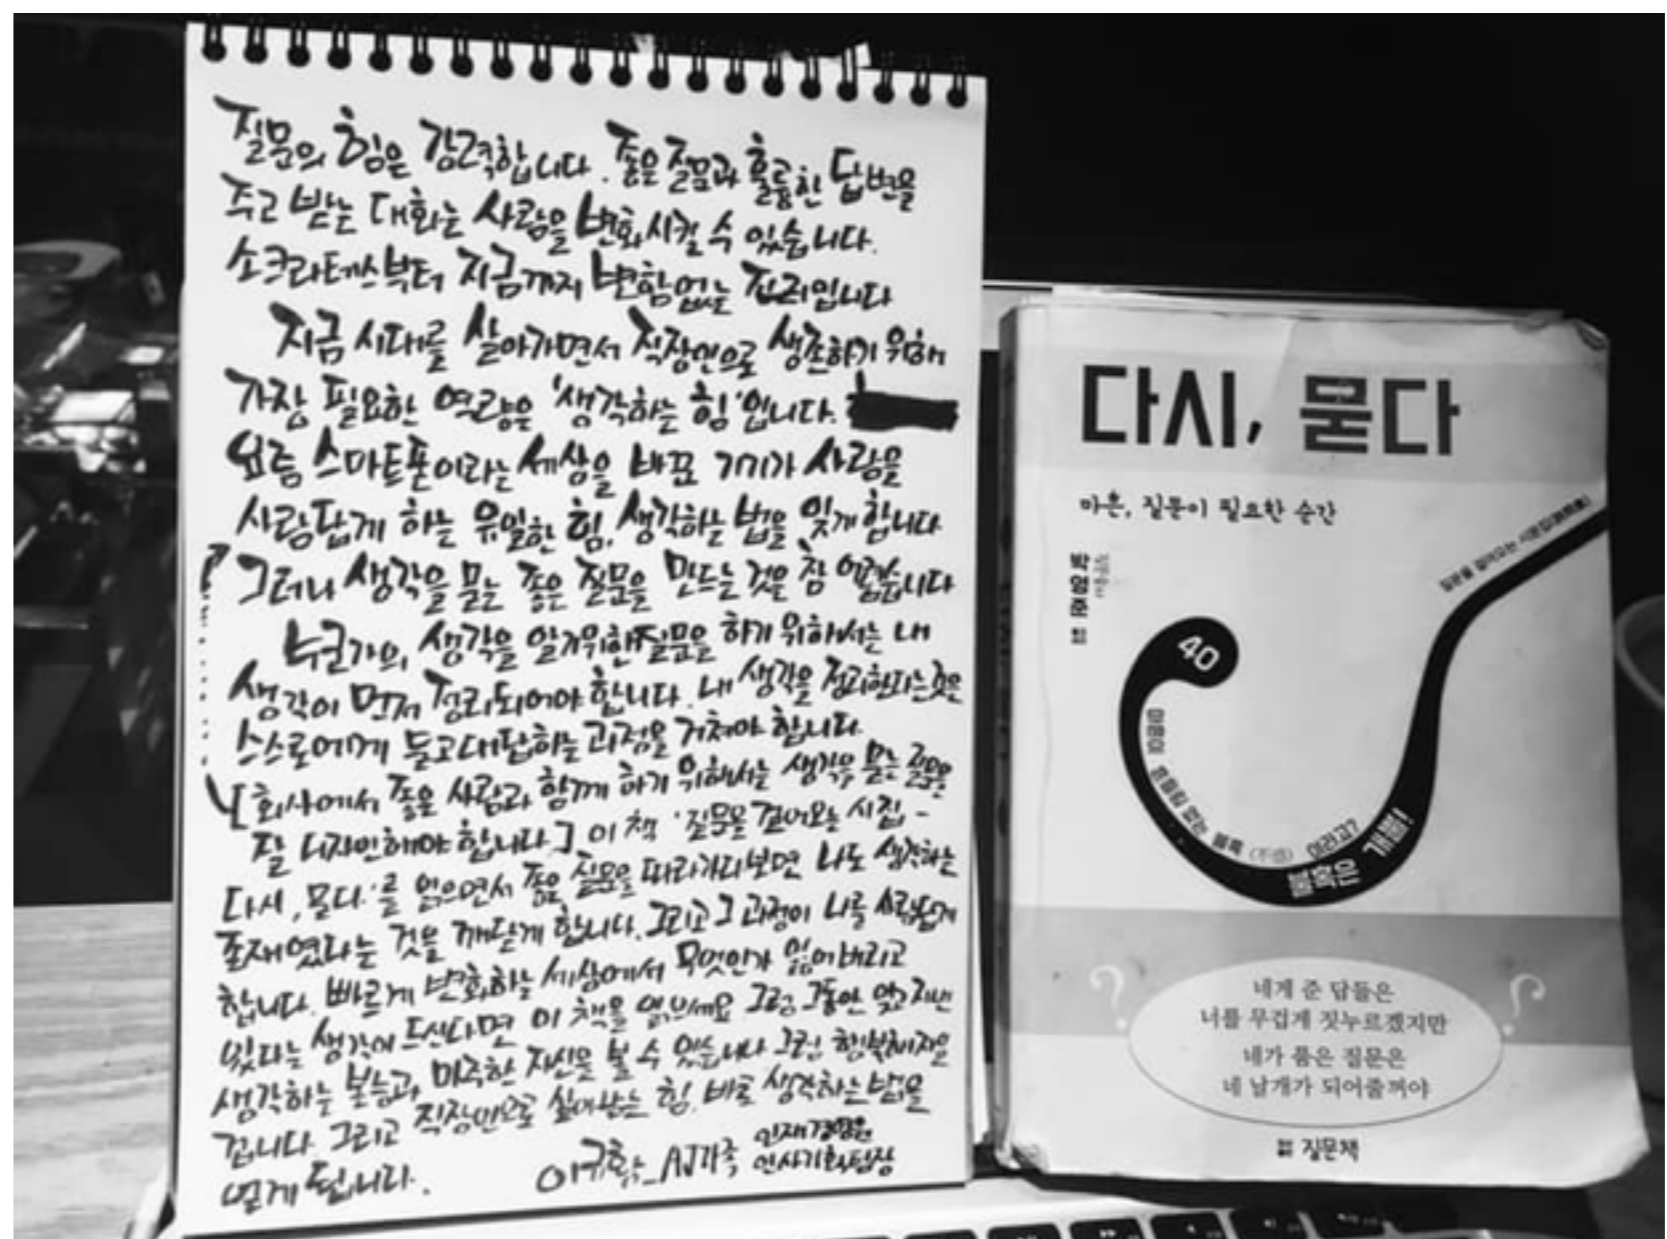 질문의 힘은 강력합니다. 좋은 질문과 훌륭한 답변을
주고 받는 대화는 사람을 변화시킬 수 있습니다.
소크라테스부터 지금까지 변함없는 진리입니다
지금 시대를 살아가면서 직장인으로 생존하기 위해
가장 필요한 역량은 '생각하는 힘'입니다.
요즘 스마트폰이라는 세상을 바꾼 기기가 사람을
사람답게 하는 유일한 힘, 생각하는 법을 잊게 합니다
그러나 생각을 묻는 좋은 질문을 만드는 것은 참 어렵습니다
누군가의 생각을 알기위한 질문을 하기 위해서는 내
생각이 먼저 정리되어야 합니다. 내 생각을 정리한다는것은
스스로에게 묻고 대답하는 과정을 거쳐야 합니다.
[회사에서 좋은 사람과 함께 하기 위해서는 생각을 묻는 질문을
잘 디자인해야 합니다.] 이 책 '질문을 걸어오는 시집 -
다시, 묻다.'를 읽으면서 좋은 질문을 따라가다보면 나도 생각하는
존재였다는 것을 깨닫게 합니다. 그리고 그 과정이 나를 사람답게
합니다. 빠르게 변화하는 세상에서 무엇인가 잃어버리고
있다는 생각이 드신다면 이 책을 읽으세요 그럼 그동안 잊고 지낸
생각하는 본능과 마주한 자신을 볼 수 있습니다 그럼 행복해지실
겁니다. 그리고 직장인으로 살아남는 힘, 바로 생각하는 법을
얻게 됩니다.
AJ가족 인재경영원
인사기획팀장
다시, 묻다
마흔, 질문이 필요한 순간
박영준
질문을 걸어오는 시문집
40
마흔이 흔들림 없는 불혹(不惑)이라고?
불혹은 개뿔!
네게 준 답들은
너를 무겁게 짓누르겠지만
네가 품은 질문은
네 날개가 되어줄꺼야
질문책